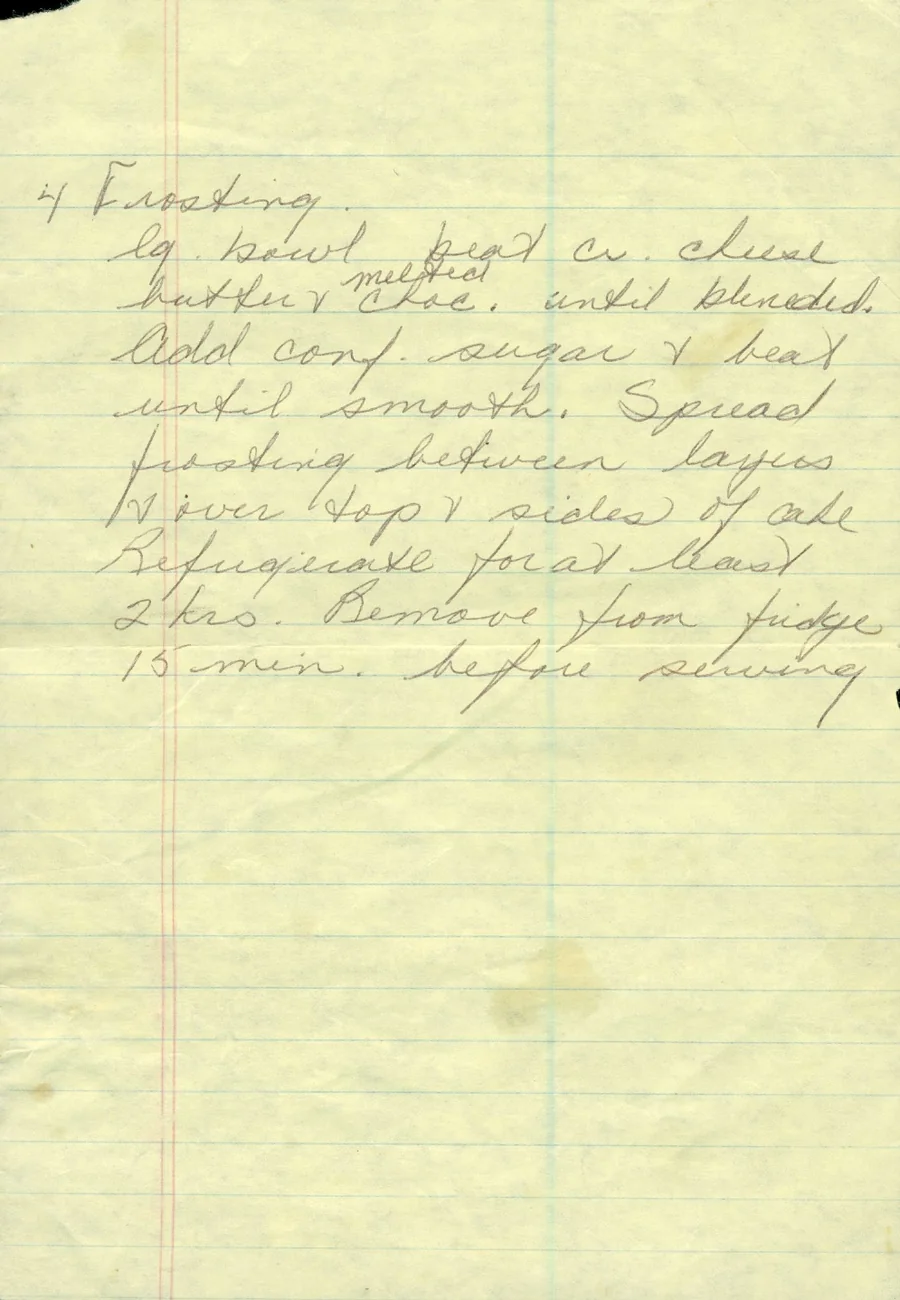 4 Frosting.
lg. bowl beat cr. cheese
melted
butter & choc. until blended.
Add conf. sugar & beat
until smooth. Spread
frosting between layers
& over top & sides of cake
Refrigerate for at least
2 hrs. Remove from fridge
15 min. before serving